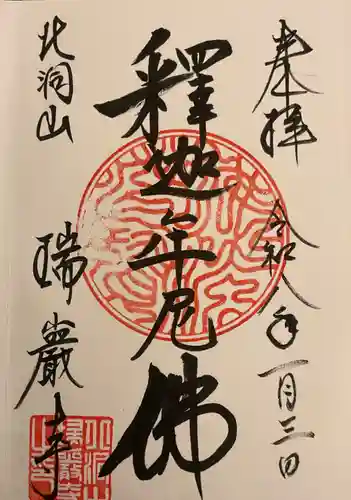 奉拝
令和八年一月三日
釋迦牟尼佛
北洞山
瑞巖寺